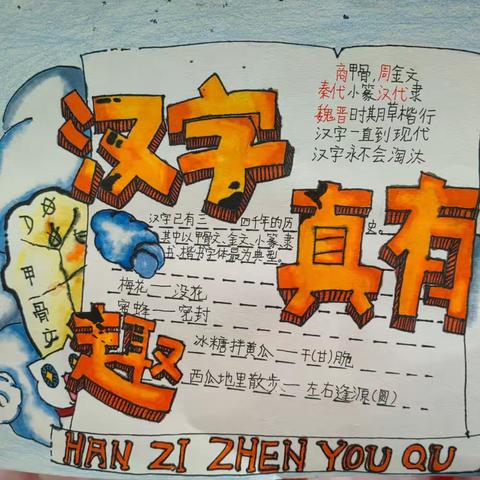 汉字真有趣
商甲骨,周金文
秦代小篆汉代隶
魏晋时期草楷行
汉字一直到现代
汉字永不会淘汰
汉字已有三——四千年的历史。
其中以甲骨文、金文、小篆、隶
书、楷书字体最为典型。
甲骨文
梅花——没花
蜜蜂——密封
冰糖拌黄瓜——干(甘)脆
西瓜地里散步——左右逢源(圆)
HAN ZI ZHEN YOU QU